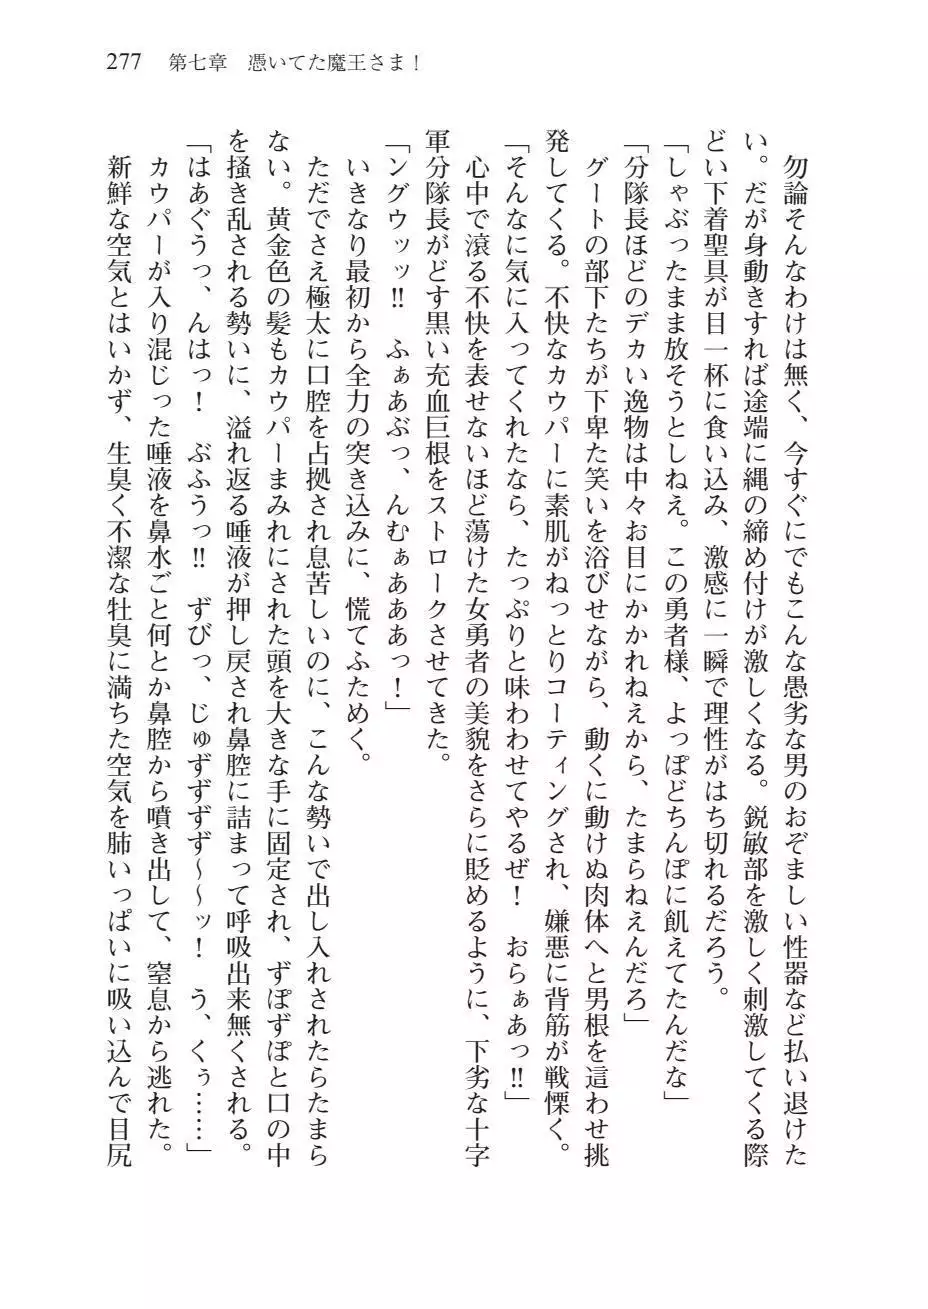 277　第七章　憑いてた魔王さま！
　勿論そんなわけは無く、今すぐにでもこんな愚劣な男のおぞましい性器など払い退けた
い。だが身動きすれば途端に縄の締め付けが激しくなる。鋭敏部を激しく刺激してくる際
どい下着聖具が目一杯に食い込み、激感に一瞬で理性がはち切れるだろう。
「しゃぶったまま放そうとしねえ。この勇者様、よっぽどちんぽに飢えてたんだな」
「分隊長ほどのデカい逸物は中々お目にかかれねえから、たまらねえんだろ」
　グートの部下たちが下卑た笑いを浴びせながら、動くに動けぬ肉体へと男根を這わせ挑
発してくる。不快なカウパーに素肌がねっとりコーティングされ、嫌悪に背筋が戦慄く。
「そんなに気に入ってくれたなら、たっぷりと味わわせてやるぜ！　おらぁあっ‼」
　心中で滾る不快を表せないほど蕩けた女勇者の美貌をさらに貶めるように、下劣な十字
軍分隊長がどす黒い充血巨根をストロークさせてきた。
「ングウッッ‼　ふぁあぶっ、んむぁあああっ！」
　いきなり最初から全力の突き込みに、慌てふためく。
　ただでさえ極太に口腔を占拠され息苦しいのに、こんな勢いで出し入れされたらたまら
ない。黄金色の髪もカウパーまみれにされた頭を大きな手に固定され、ずぽずぽと口の中
を掻き乱される勢いに、溢れ返る唾液が押し戻され鼻腔に詰まって呼吸出来無くされる。
「はあぐうっ、んはっ！　ぶふうっ‼　ずびっ、じゅずずずず～～ッ！　う、くぅ……」
　カウパーが入り混じった唾液を鼻水ごと何とか鼻腔から噴き出して、窒息から逃れた。
　新鮮な空気とはいかず、生臭く不潔な牡臭に満ちた空気を肺いっぱいに吸い込んで目尻